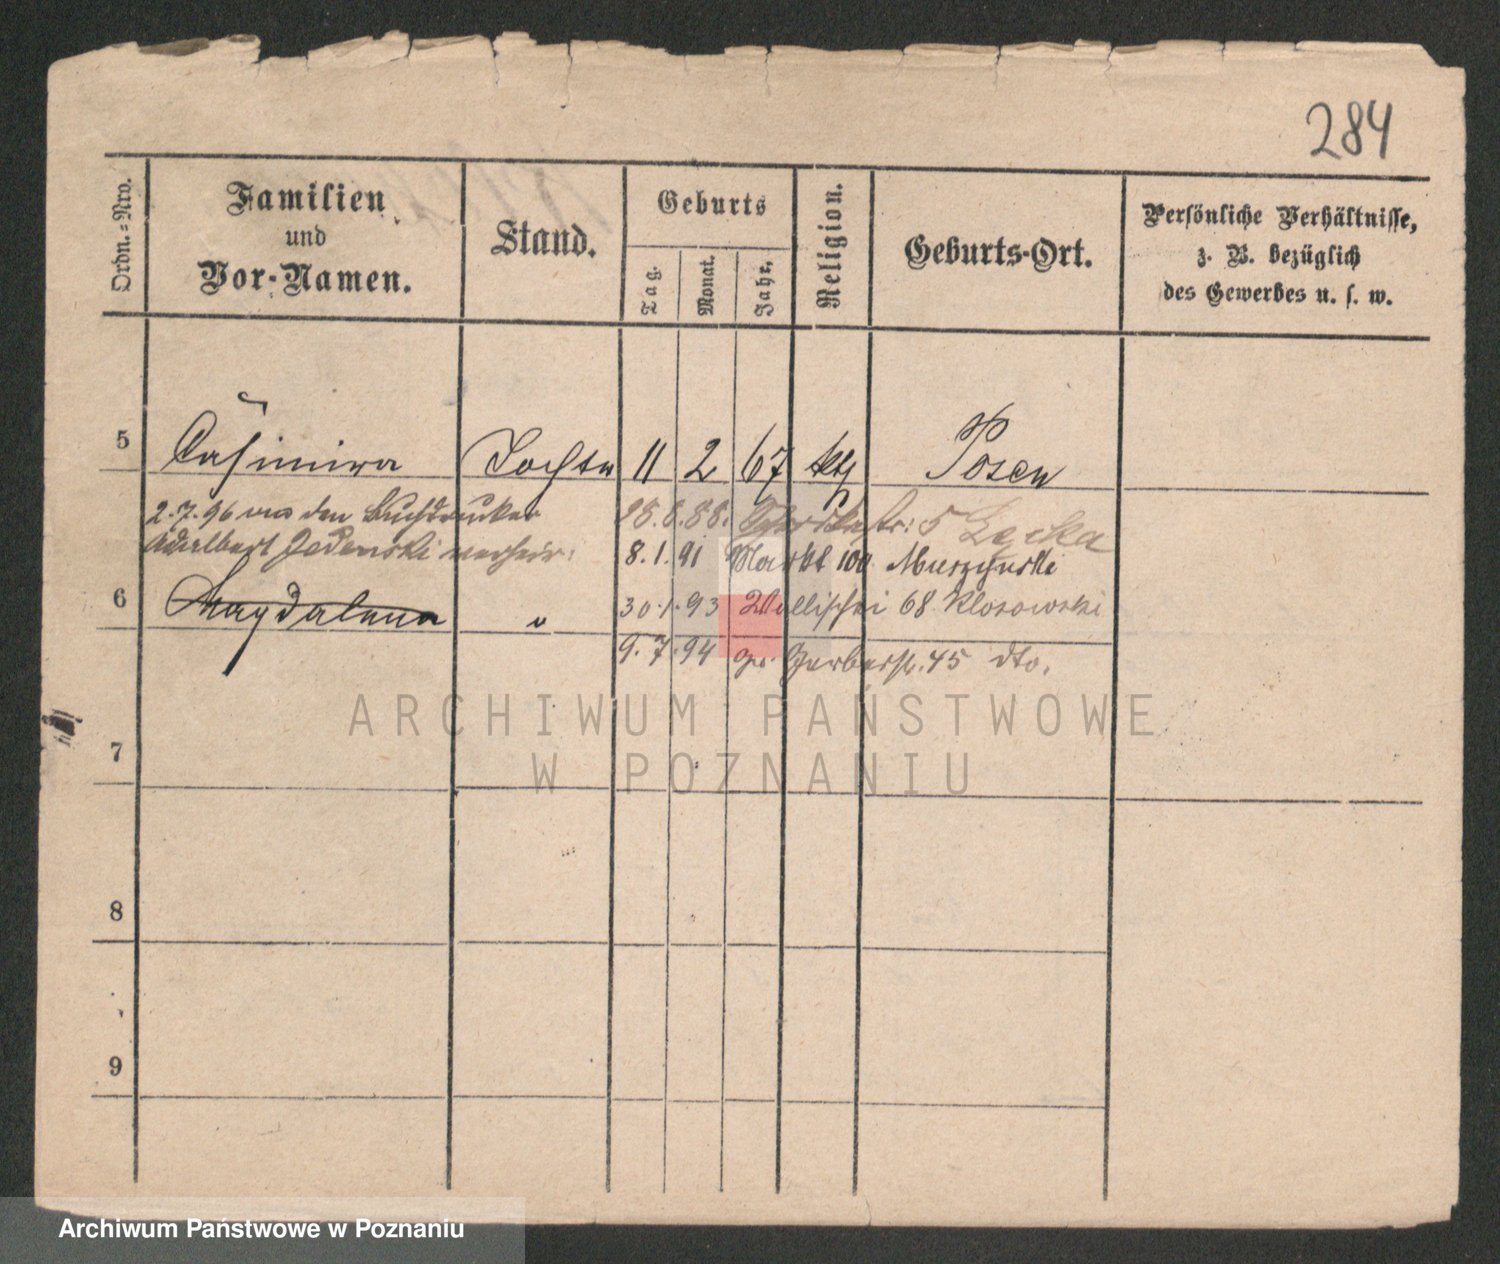 284
Ordn.-Nro.
Familien
und
Vor-Namen.
Stand.
Geburts
Tag.
Monat.
Jahr.
Religion.
Geburts-Ort.
Persönliche Verhältnisse,
z. B. bezüglich
des Gewerbes u. s. w.
5 Casimira Tochter 11 2 67 kth Posen
2.7.96 den Buchdrucker
Adalbert verheir:
28.8.88. 5 Łęcka
8.1.91 Markt 100 Muszynski
6 Magdalena "
30.1.93 Wallischei 68 Klosowski
9.7.94 gr. Gerberstr. 45 dto.
7
8
9
ARCHIWUM PAŃSTWOWE
W POZNANIU
Archiwum Państwowe w Poznaniu